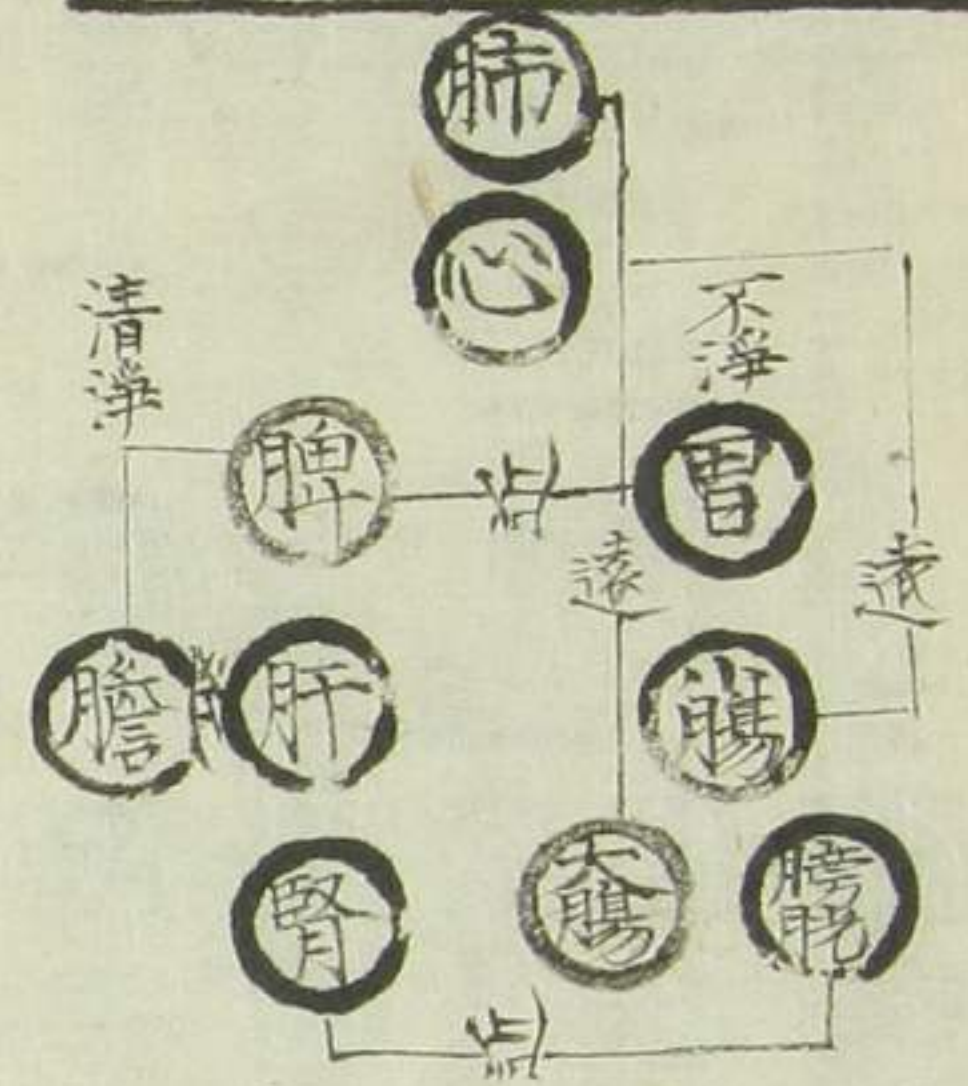 肺
心
清淨
不淨
脾
胃
遠
遠
膽
肝
小腸
腎
大腸
膀胱